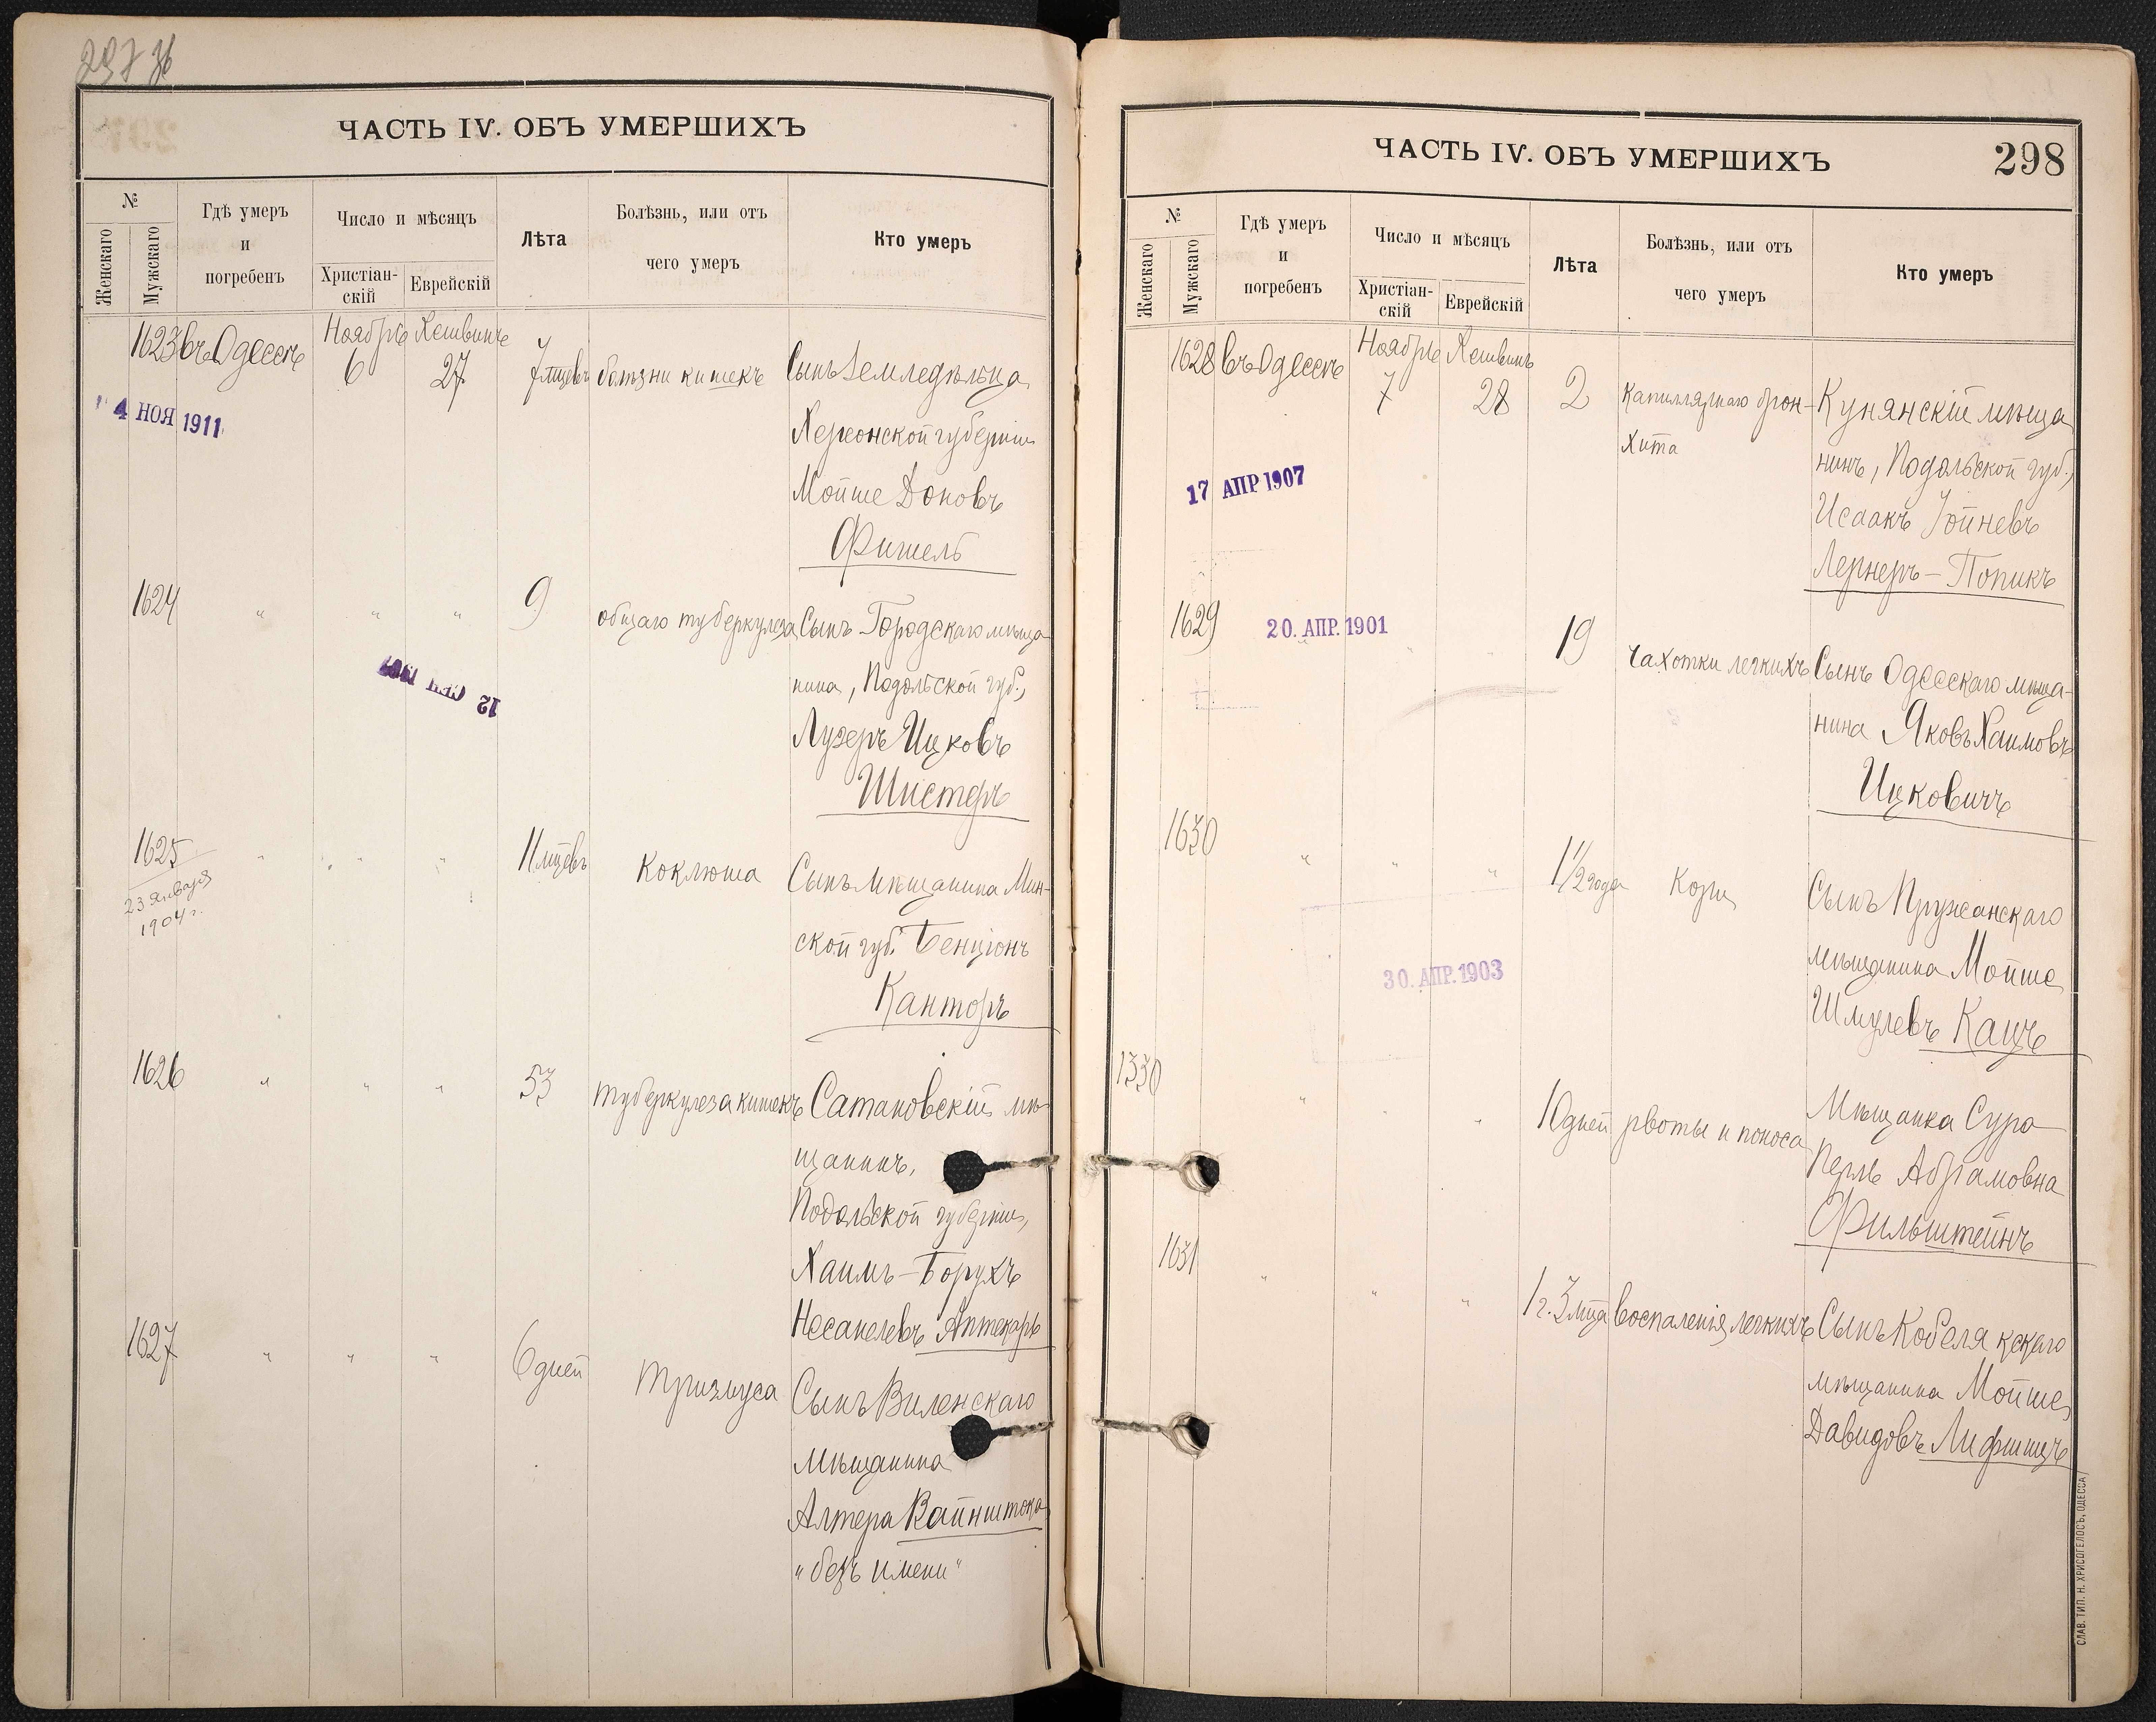 ЧАСТЬ IV. ОБЪ УМЕРШИХЪ
№
Женскаго
Мужскаго
Гдѣ умеръ
и
погребенъ
Число и мѣсяцъ
Христіан-
скій
Еврейскій
Лѣта
Болѣзнь, или отъ
чего умеръ
Кто умеръ
1623 въ Одессѣ
Ноября Хешвинъ
6 27
7 мцевъ
болѣзни кишекъ
Сынъ Земледѣльца
Херсонской губерніи
Мойше Доновъ
Фишель
4 НОЯ 1911
1624 " " "
9
общаго туберкулеза
Сынъ Городскаго мѣща
нина, Подольской губ.,
Лузеръ Ицковъ
Шистеръ
12 СЕН 1907
1625 " " "
23 Января
1904 г.
11 мцевъ
Коклюша
Сынъ мѣщанина Мин-
ской губ. Бенціонъ
Канторъ
1626 " " "
53
туберкулеза кишекъ
Сатановскій мѣ
щанинъ,
Подольской губерніи,
Хаимъ-Борухъ
Несанелевъ Аптекарь
1627 " " "
6 дней
тризмуса
Сынъ Виленскаго
мѣщанина
Алтера Вайнштока
"безъ имени"
ЧАСТЬ IV. ОБЪ УМЕРШИХЪ
298
№
Женскаго
Мужскаго
Гдѣ умеръ
и
погребенъ
Число и мѣсяцъ
Христіан-
скій
Еврейскій
Лѣта
Болѣзнь, или отъ
чего умеръ
Кто умеръ
1628 въ Одессѣ
Ноября Хешвинъ
7 28
2
Капиллярнаго брон-
хита
Кунянскій мѣща
нинъ, Подольской губ.,
Исаакъ Іойневъ
Лернеръ-Попикъ
17 АПР 1907
1629 " " "
20. АПР. 1901
19
Чахотки легкихъ
Сынъ Одесскаго мѣща-
нина Яковъ Хаимовъ
Ицковичъ
1630 " " "
1 1/2 года
Кори
Сынъ Пружанскаго
мѣщанина Мойше
Шмулевъ Кацъ
30. АПР. 1903
1330 " " "
10 дней
рвоты и поноса
Мѣщанка Сура
Перль Абрамовна
Фильштейнъ
1631 " " "
1 г. 3 мца
воспаленія легкихъ
Сынъ Кобелякскаго
мѣщанина Мойше
Давидовъ Лифшицъ
СЛАВ. ТИП. Н. ХРИСОГЕЛОСЪ, ОДЕССА